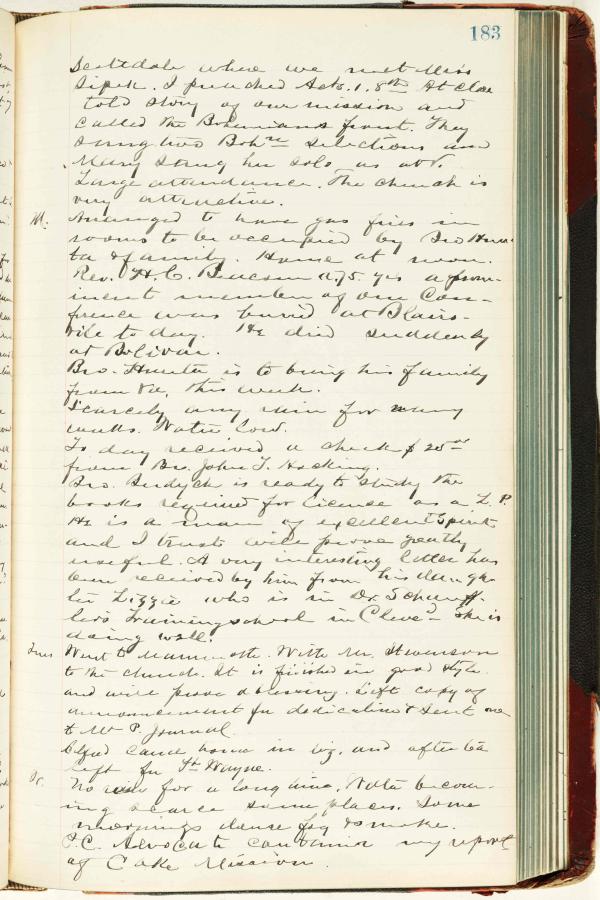 183
Scottdale where we met Miss
Sipek. I preached Acts. 1. 8th. At close
told story of our mission and
called the Bohemians front. They
sang two Bohn selections and
Mary sang her solo as at
Large attendance. The church is
very attractive.
M. Arranged to have gas fires in
rooms to be occupied by Bro Hun-
ta & family. Home at noon.
Rev. H. C. Beacom a. 75. yrs a prom-
inent member of our Con-
ference was buried at Blairs-
ville to day. He died suddenly
at Bolivar.
Bro. Hunta is to bring his family
from Va. this week.
Scarcely any rain for many
weeks. Water low.
To day received a check $ 25 00
from Bro. John T. Hocking.
Bro. is ready to study the
books required for license as a L. P.
He is a man of excellent spirit
and I trust will prove greatly
useful. A very interesting letter has
been received by him from his daugh-
ter Lizzie who is in Dr. Schauff-
ler's Training school in Cleved - She is
doing well.
Tues Went to Mammoth. With Mr. Stevenson
to the church. It is finished in good style
and will prove a blessing. Left copy of
announcement for dedication & sent one
to Mt P. Journal.
came home in evg, and after tea
left for Ft Wayne.
No rain for a long time. Water becom-
ing scarce some places. Some
mornings dense fog & smoke.
P. C. Advocate contains my report
of Coke Mission.